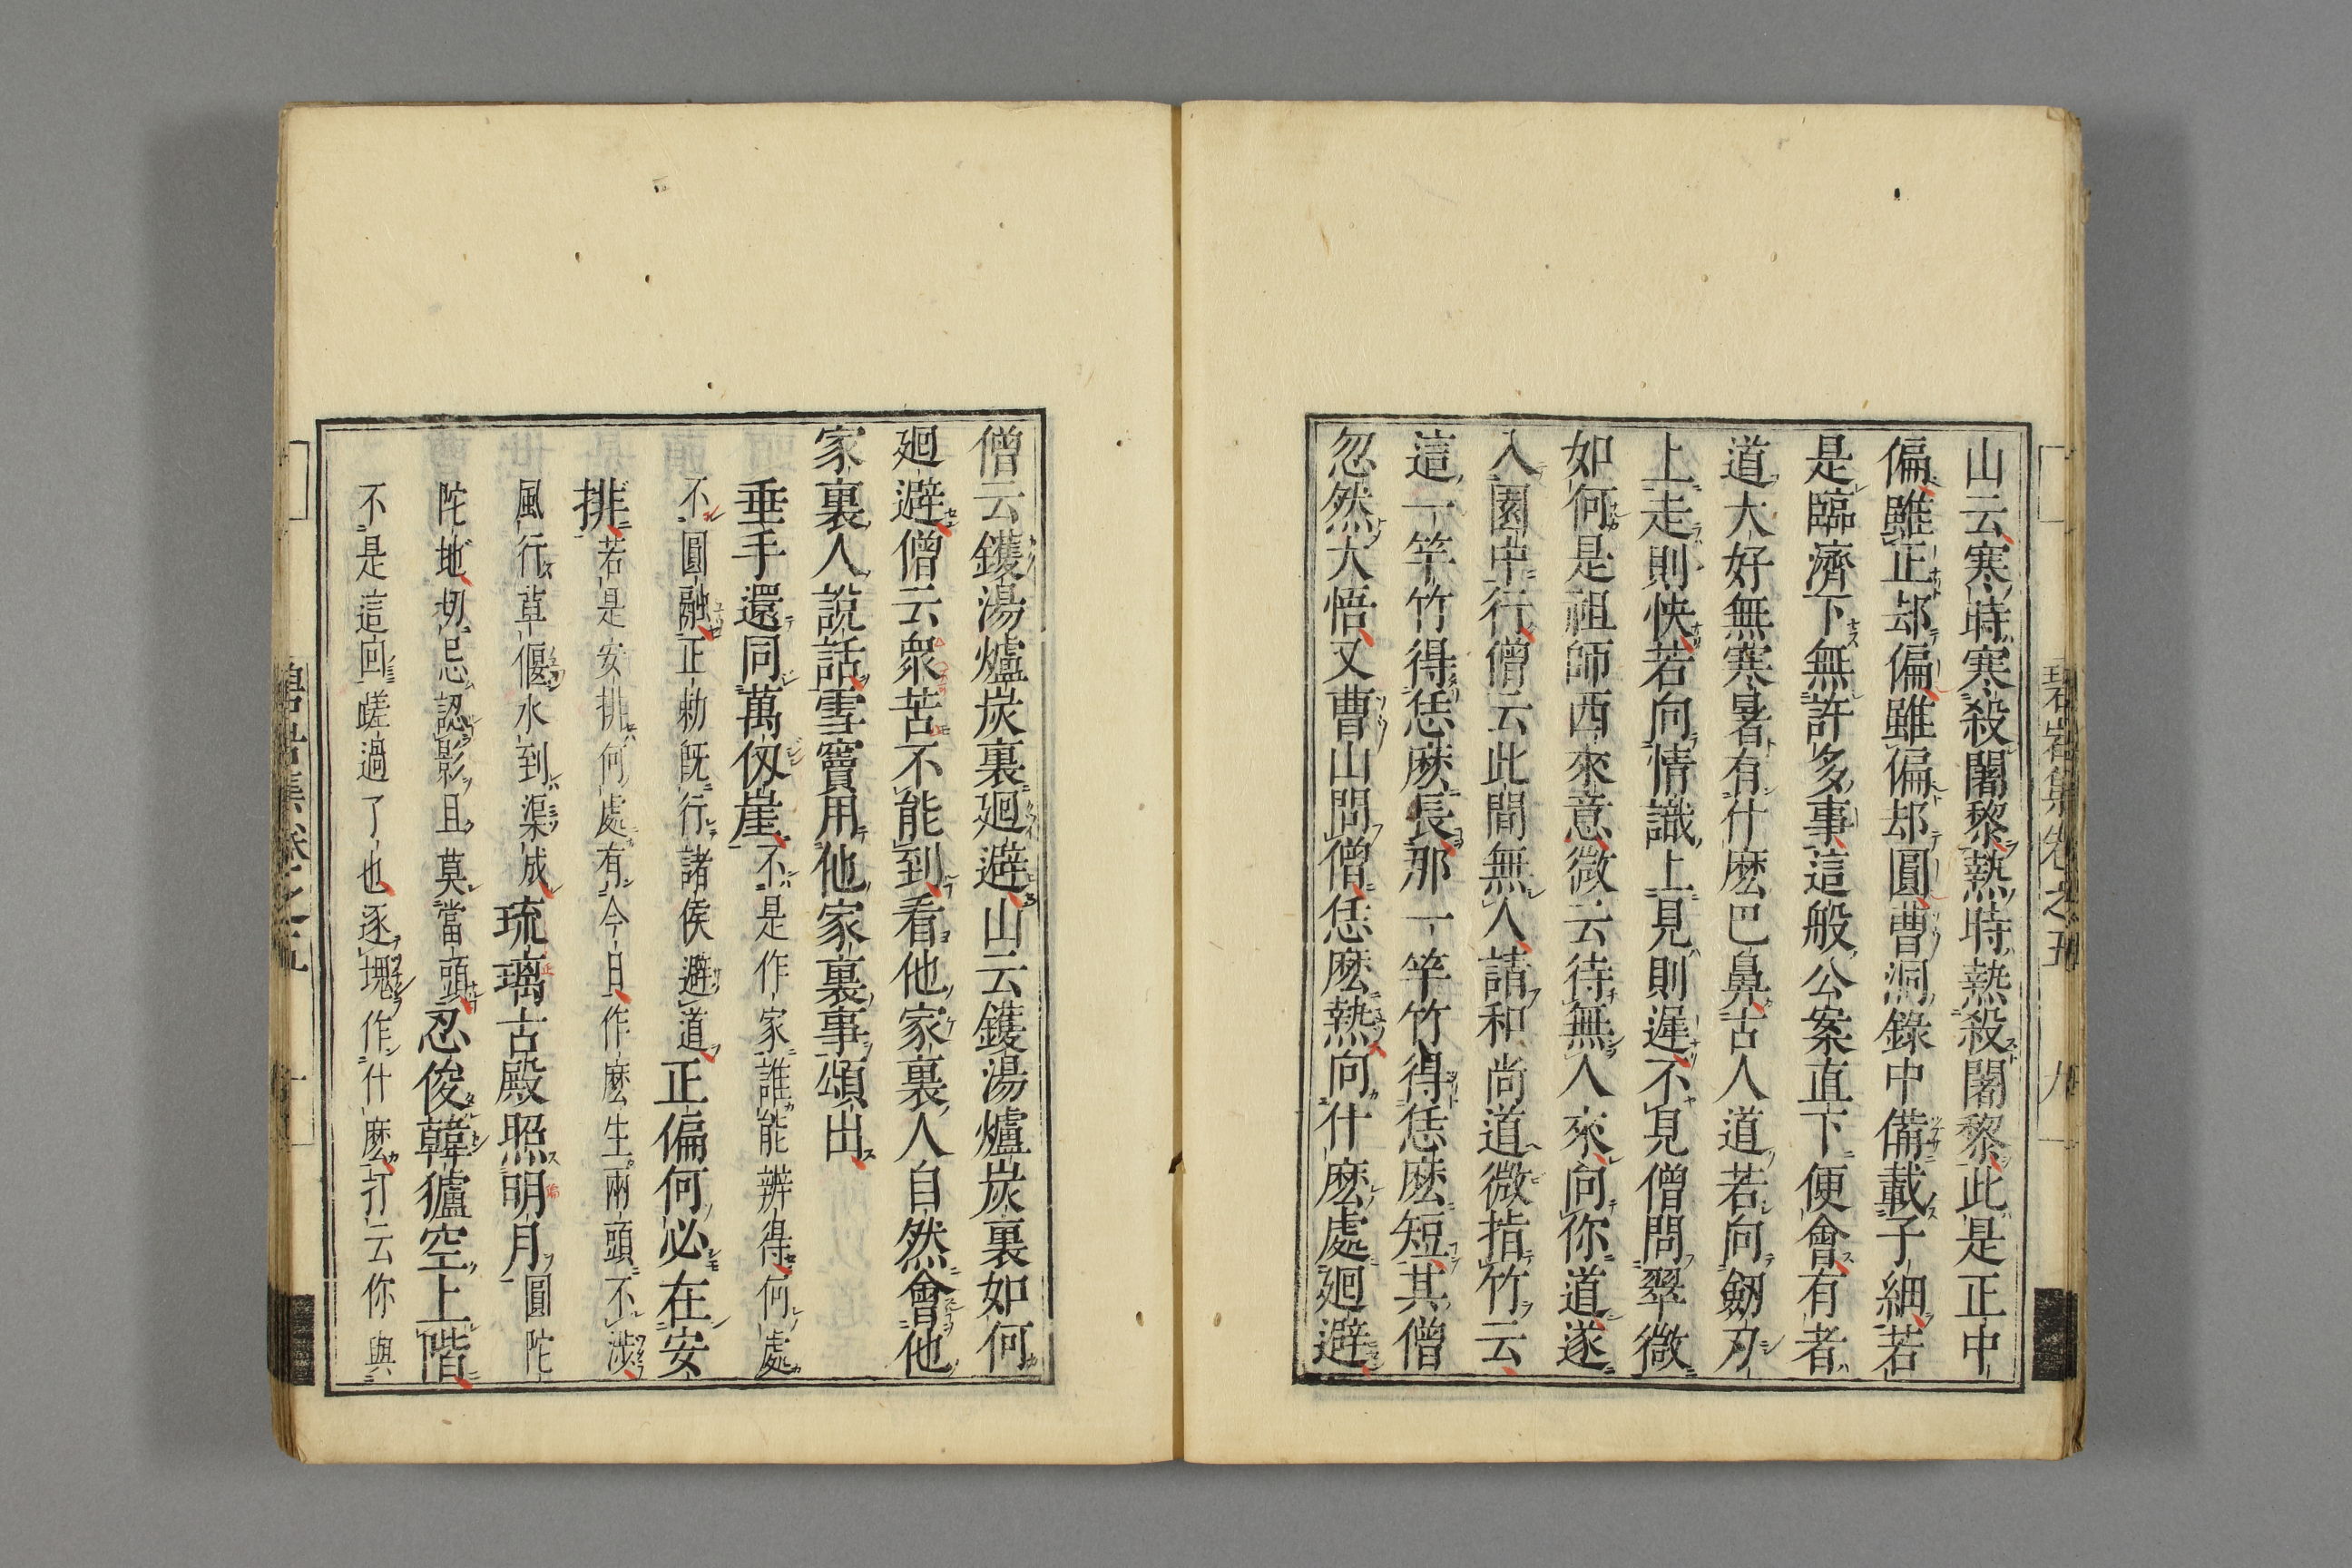 山云寒時寒殺闍黎熱時熱殺闍黎此是正中
偏雖正却偏雖偏却圓曹洞錄中備載子細若
是臨濟下無許多事這般公案直下便會有者
道大好無寒暑有什麽巴鼻古人道若向劒刃
上走則快若向情識上見則遲不見僧問翠微
如何是祖師西來意微云待無人來向你道遂
入園中行僧云此間無人請和尚道微指竹云
這一竿竹得恁麽長那一竿竹得恁麽短其僧
忽然大悟又曹山問僧恁麽熱向什麽處廻避
僧云鑊湯爐炭裏廻避山云鑊湯爐炭裏如何
廻避僧云衆苦不能到看他家裏人自然會他
家裏人說話雪竇用他家裏事頌出
垂手還同萬仭崖不是作家誰能辨得何處
不圓融正勅旣行諸侯避道正偏何必在安
排若是安排何處有今日作麽生兩頭不涉
風行草偃水到渠成琉璃古殿照明月圓陀
陀地切忌認影且莫當頭忍俊韓獹空上階
不是這回蹉過了也逐塊作什麽打云你與
碧岩集卷之五 九
碧岩集卷之五 十